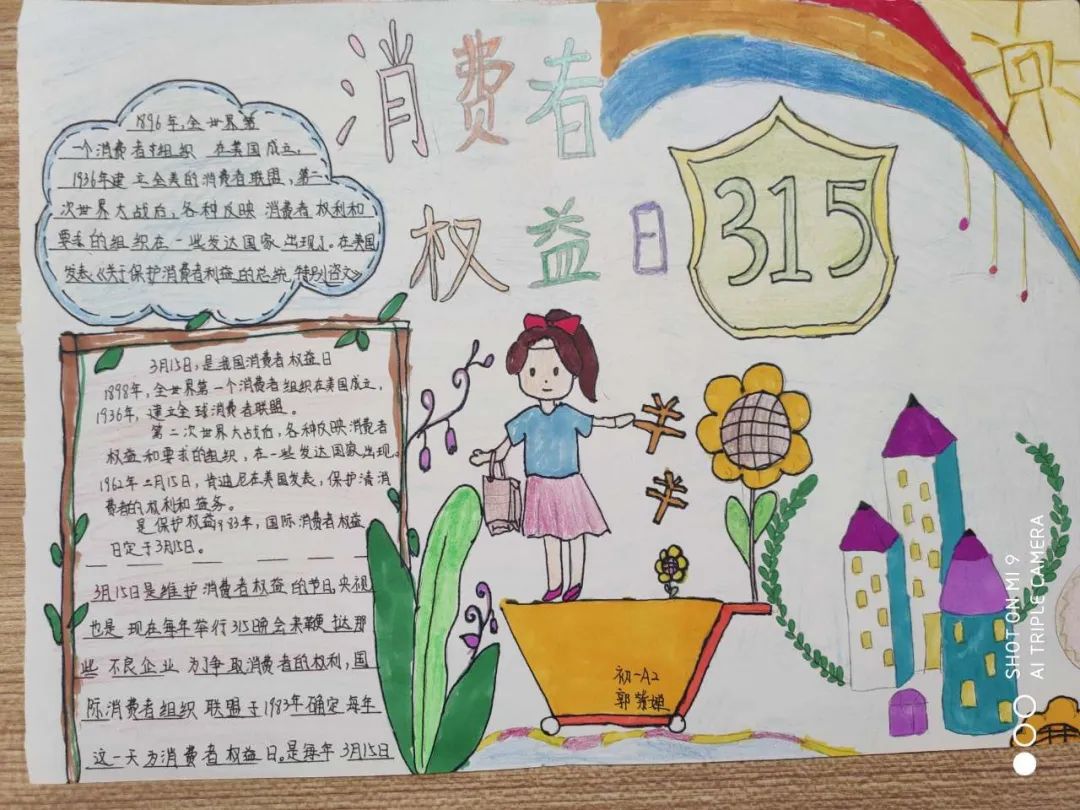 消费者
权益日
315
1896年,全世界第
一个消费者组织 在美国成立,
1936年建立全美的消费者联盟,第二
次世界大战后,各种反映消费者权利和
要求的组织在一些发达国家出现了。在美国
发表《关于保护消费者利益的总统特别咨文》
3月15日,是我国消费者权益日
1898年,全世界第一个消费者组织在美国成立,
1936年,建立全球消费者联盟。
第二次世界大战后,各种反映消费者
权益和要求的组织,在一些发达国家出现。
1962年二月15日,肯迪尼在美国发表,保护清消
费者的权利和益务。
是保护权益983年,国际消费者权益
日定于3月15日。
3月15日是维护消费者权益的节日,央视
也是 现在每年举行315晚会来鞭挞那
些 不良企业 为争取消费者的权利,国
际消费者组织 联盟于1983年确定每年
这一天为消费者权益日。是每年3月15日
丰
丰
初一A2
SHOT ON MI 9
AI TRIPLE CAMERA